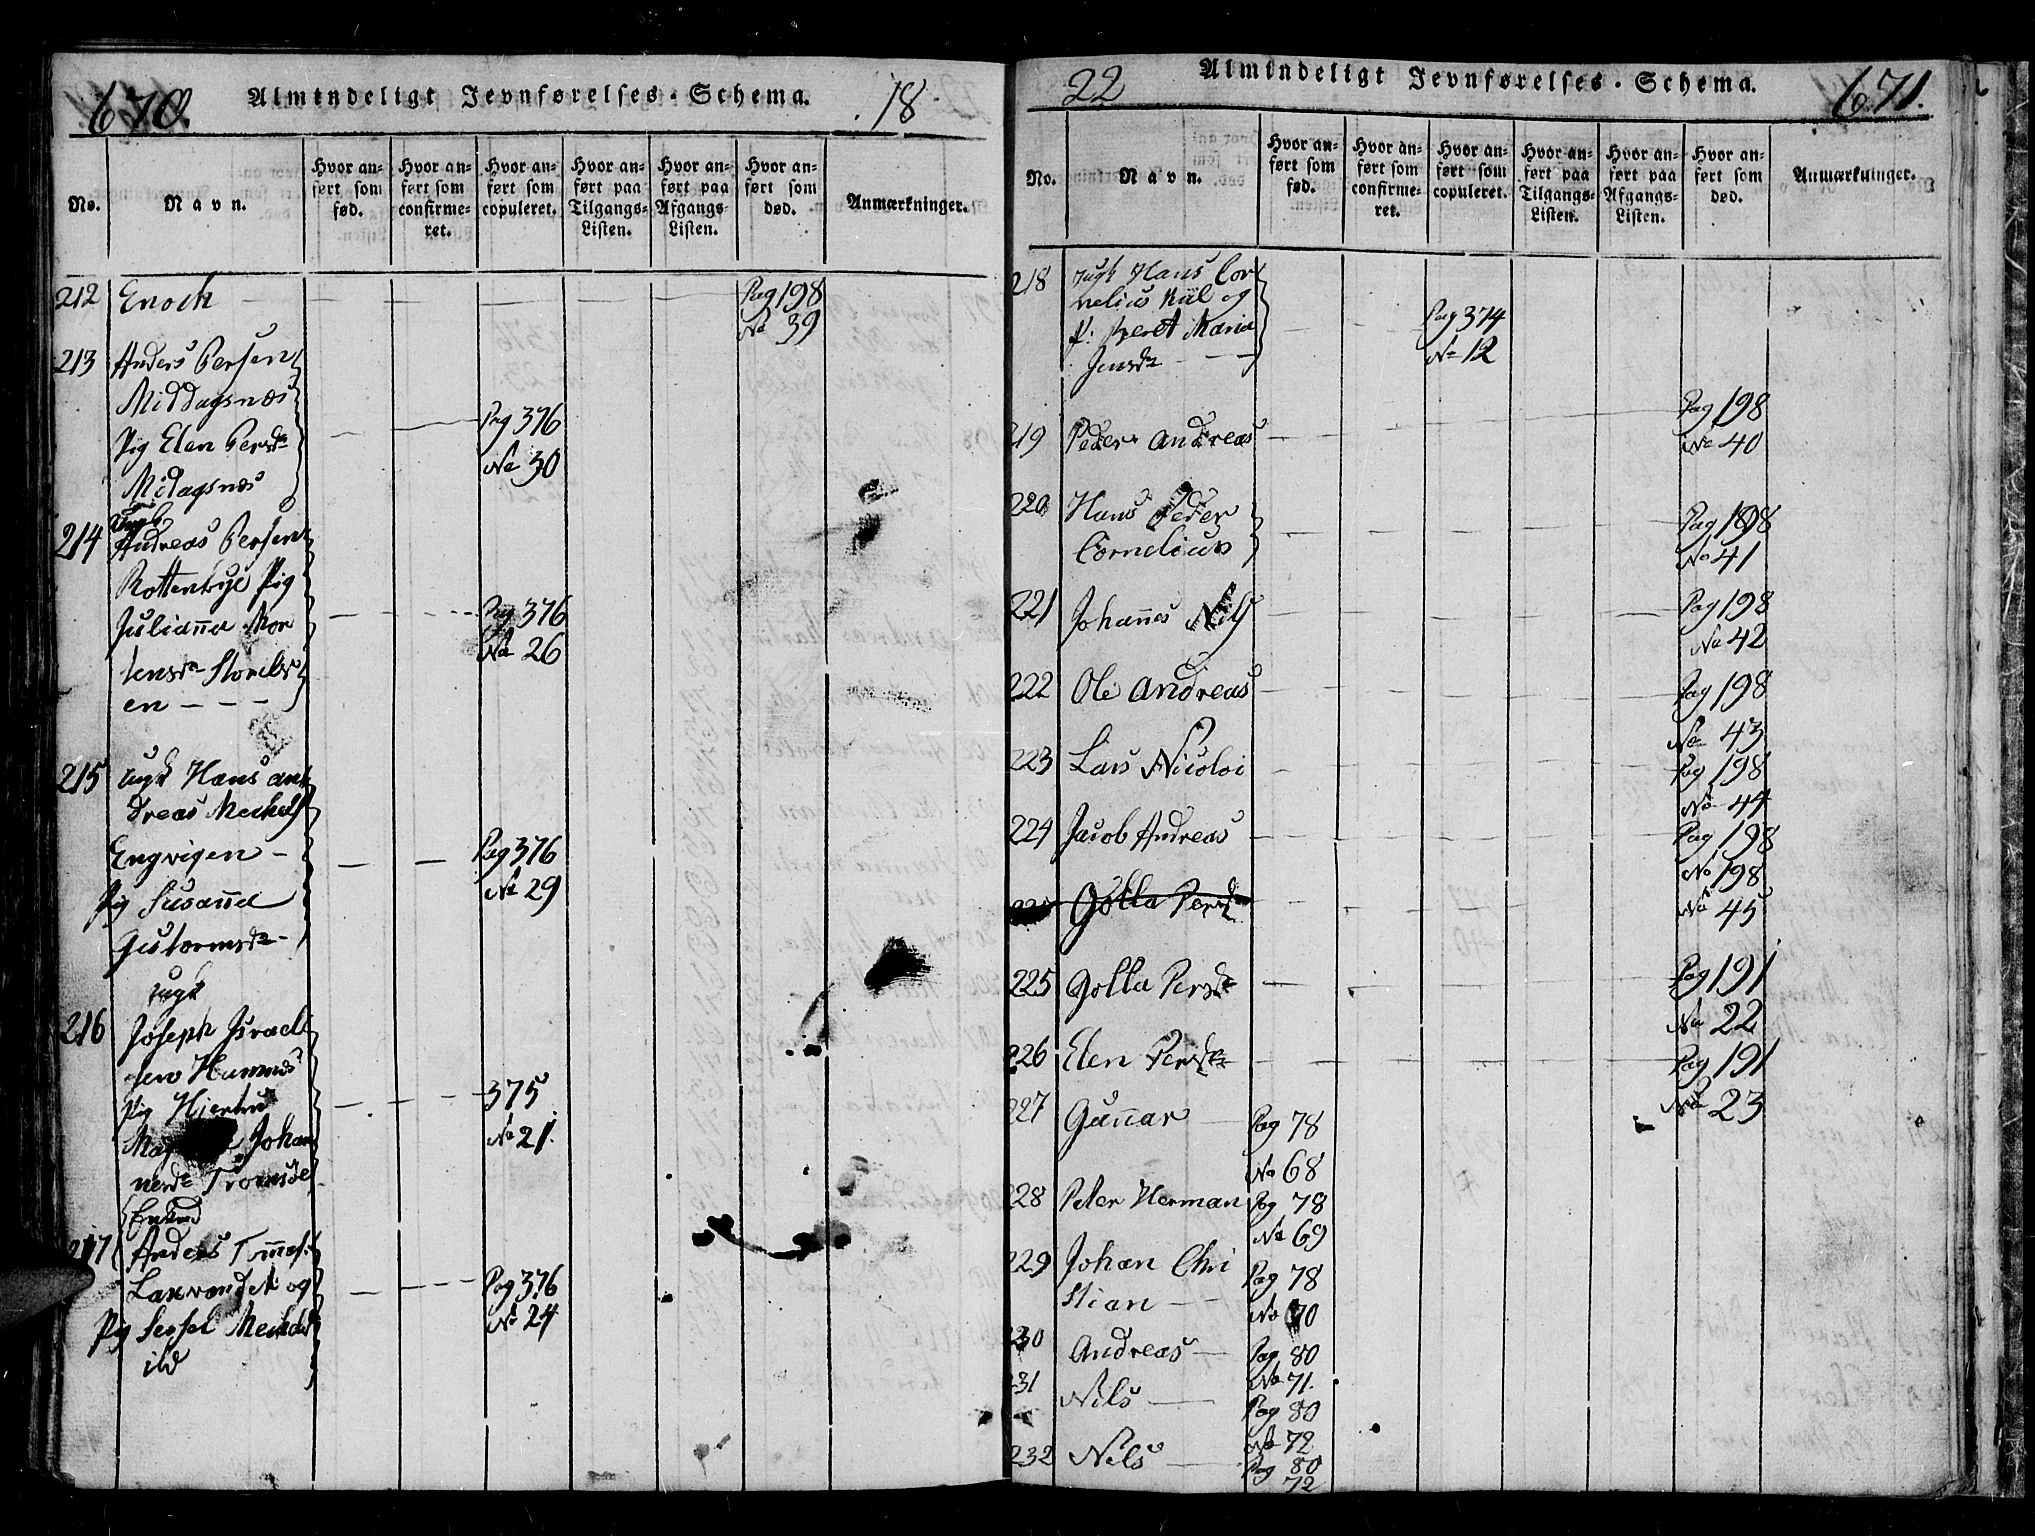 670. Almindeligt Jevnførelses-Schema. 18
No.
Navn.
Hvor anført som fød.
Hvor anført som confirmeret.
Hvor anført som copuleret.
Hvor anført paa Tilgangs-Listen.
Hvor anført paa Afgangs-Listen.
Hvor anført som død.
Anmærkninger.
212 Enoch Pag 198
No 39
213 Anders Persen
Middagsnæs
Pig Elen Persdr Pag 376
Midagsnæs No 30
Ungk
214 Andreas Persen
Rottenvye Pig
Julianna Mor Pag 376
tensdr Storels No 26
en
215 ungk Hans an
dreas Meckels
Engvigen Pag 376
Pig Susanna No 29
Gutormsdr
ungk
216 Joseph Israel
sen Hamnes
Pig Hjertru 375
Mag Johan No 21.
nesdr Tromsøe
Enkmd
217 Anders
Laxvandet og Pag 376
Pig Sessel Meckels No 24
ild
22 Almindeligt Jevnførelses-Schema. 671.
No.
Navn.
Hvor anført som fød.
Hvor anført som confirmeret.
Hvor anført som copuleret.
Hvor anført paa Tilgangs-Listen.
Hvor anført paa Afgangs-Listen.
Hvor anført som død.
Anmærkninger.
218 ungk Hans Cor
nelius Kiil og
P. Beret Maria Pag 374
Jensdr No 12
219 Peder Andreas Pag 198
No 40
220 Hans Peder Pag 198
Cornelius No 41
221 Johannes Nils Pag 198
No 42
222 Ole Andreas Pag 198
No 43
223 Lars Nicolai Pag 198
No 44
224 Jacob Andreas Pag 198
No 198
225 Golla Persdr No 45
225 Golla Persdr Pag 191
No 22
226 Elen Persdr Pag 191
No 23
227 Gunnar Pag 78
No 68
228 Peter Herman Pag 78
No 69
229 Johan Chri Pag 78
stian No 70
230 Andreas Pag 80
No 71.
231 Nils Pag 80
No 72
232 Nils Pag 80
72